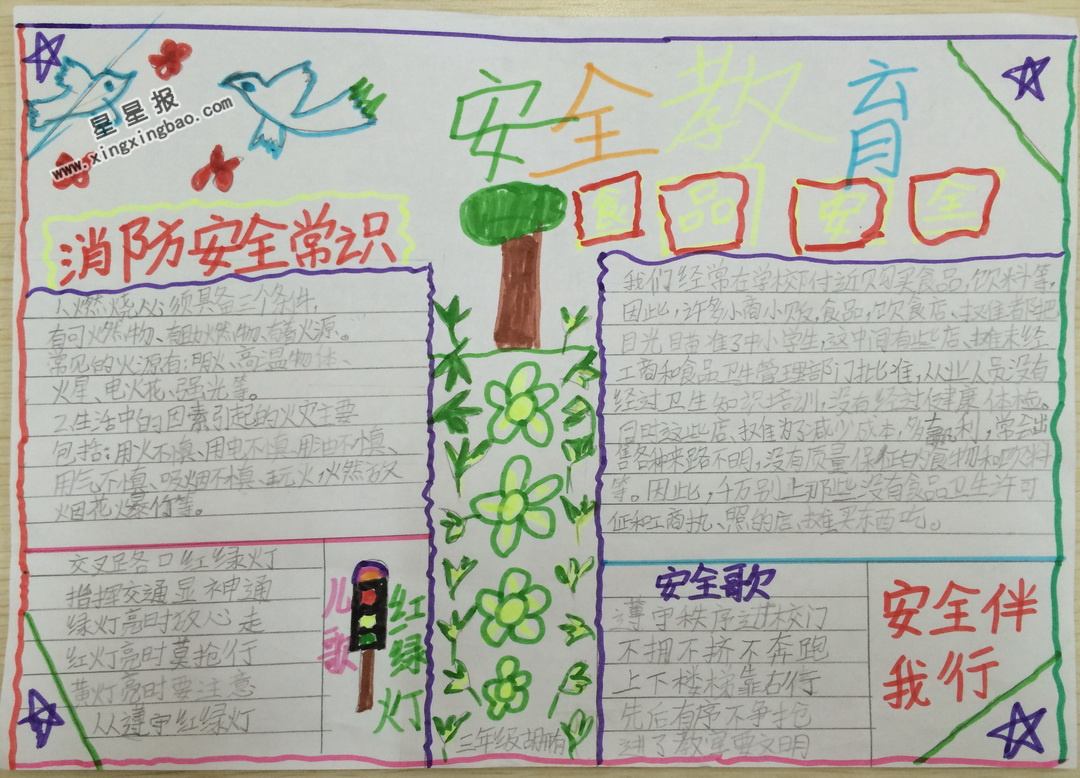 星星报
www.xingxingbao.com
安全教育
食品安全
消防安全常识
1、燃烧必须具备三个条件,
有可燃物、有助燃物、有着火源。
常见的火源有:明火、高温物体、
火星、电火花、强光等。
2、生活中的因素引起的火灾主要
包括:用火不慎、用电不慎、用油不慎、
用气不慎、吸烟不慎、玩火、燃放
烟花爆竹等。
我们经常在学校附近购买食品,饮料等,
因此,许多小商小贩,食品、饮食店、摊准都把
目光瞄准了中小学生,这中间有些店、摊未经
工商和食品卫生管理部门批准,从业人员没有
经过卫生知识培训,没有经过健康体检。
同时这些店、摊为了减少成本,多有利,常会出
售各种来路不明,没有质量保证的食物和饮料
等。因此,千万别上那些没有食品卫生许可
证和工商执、照的店、摊买东西吃。
交叉路口红绿灯
指挥交通显神通
绿灯亮时放心走
红灯亮时莫抢行
黄灯亮时要注意
人人遵守红绿灯
儿歌
红绿灯
三年级
安全歌
遵守秩序进校门
不拥不挤不奔跑
上下楼梯靠右行
先后有序不争抢
进了教室要文明
安全伴
我行